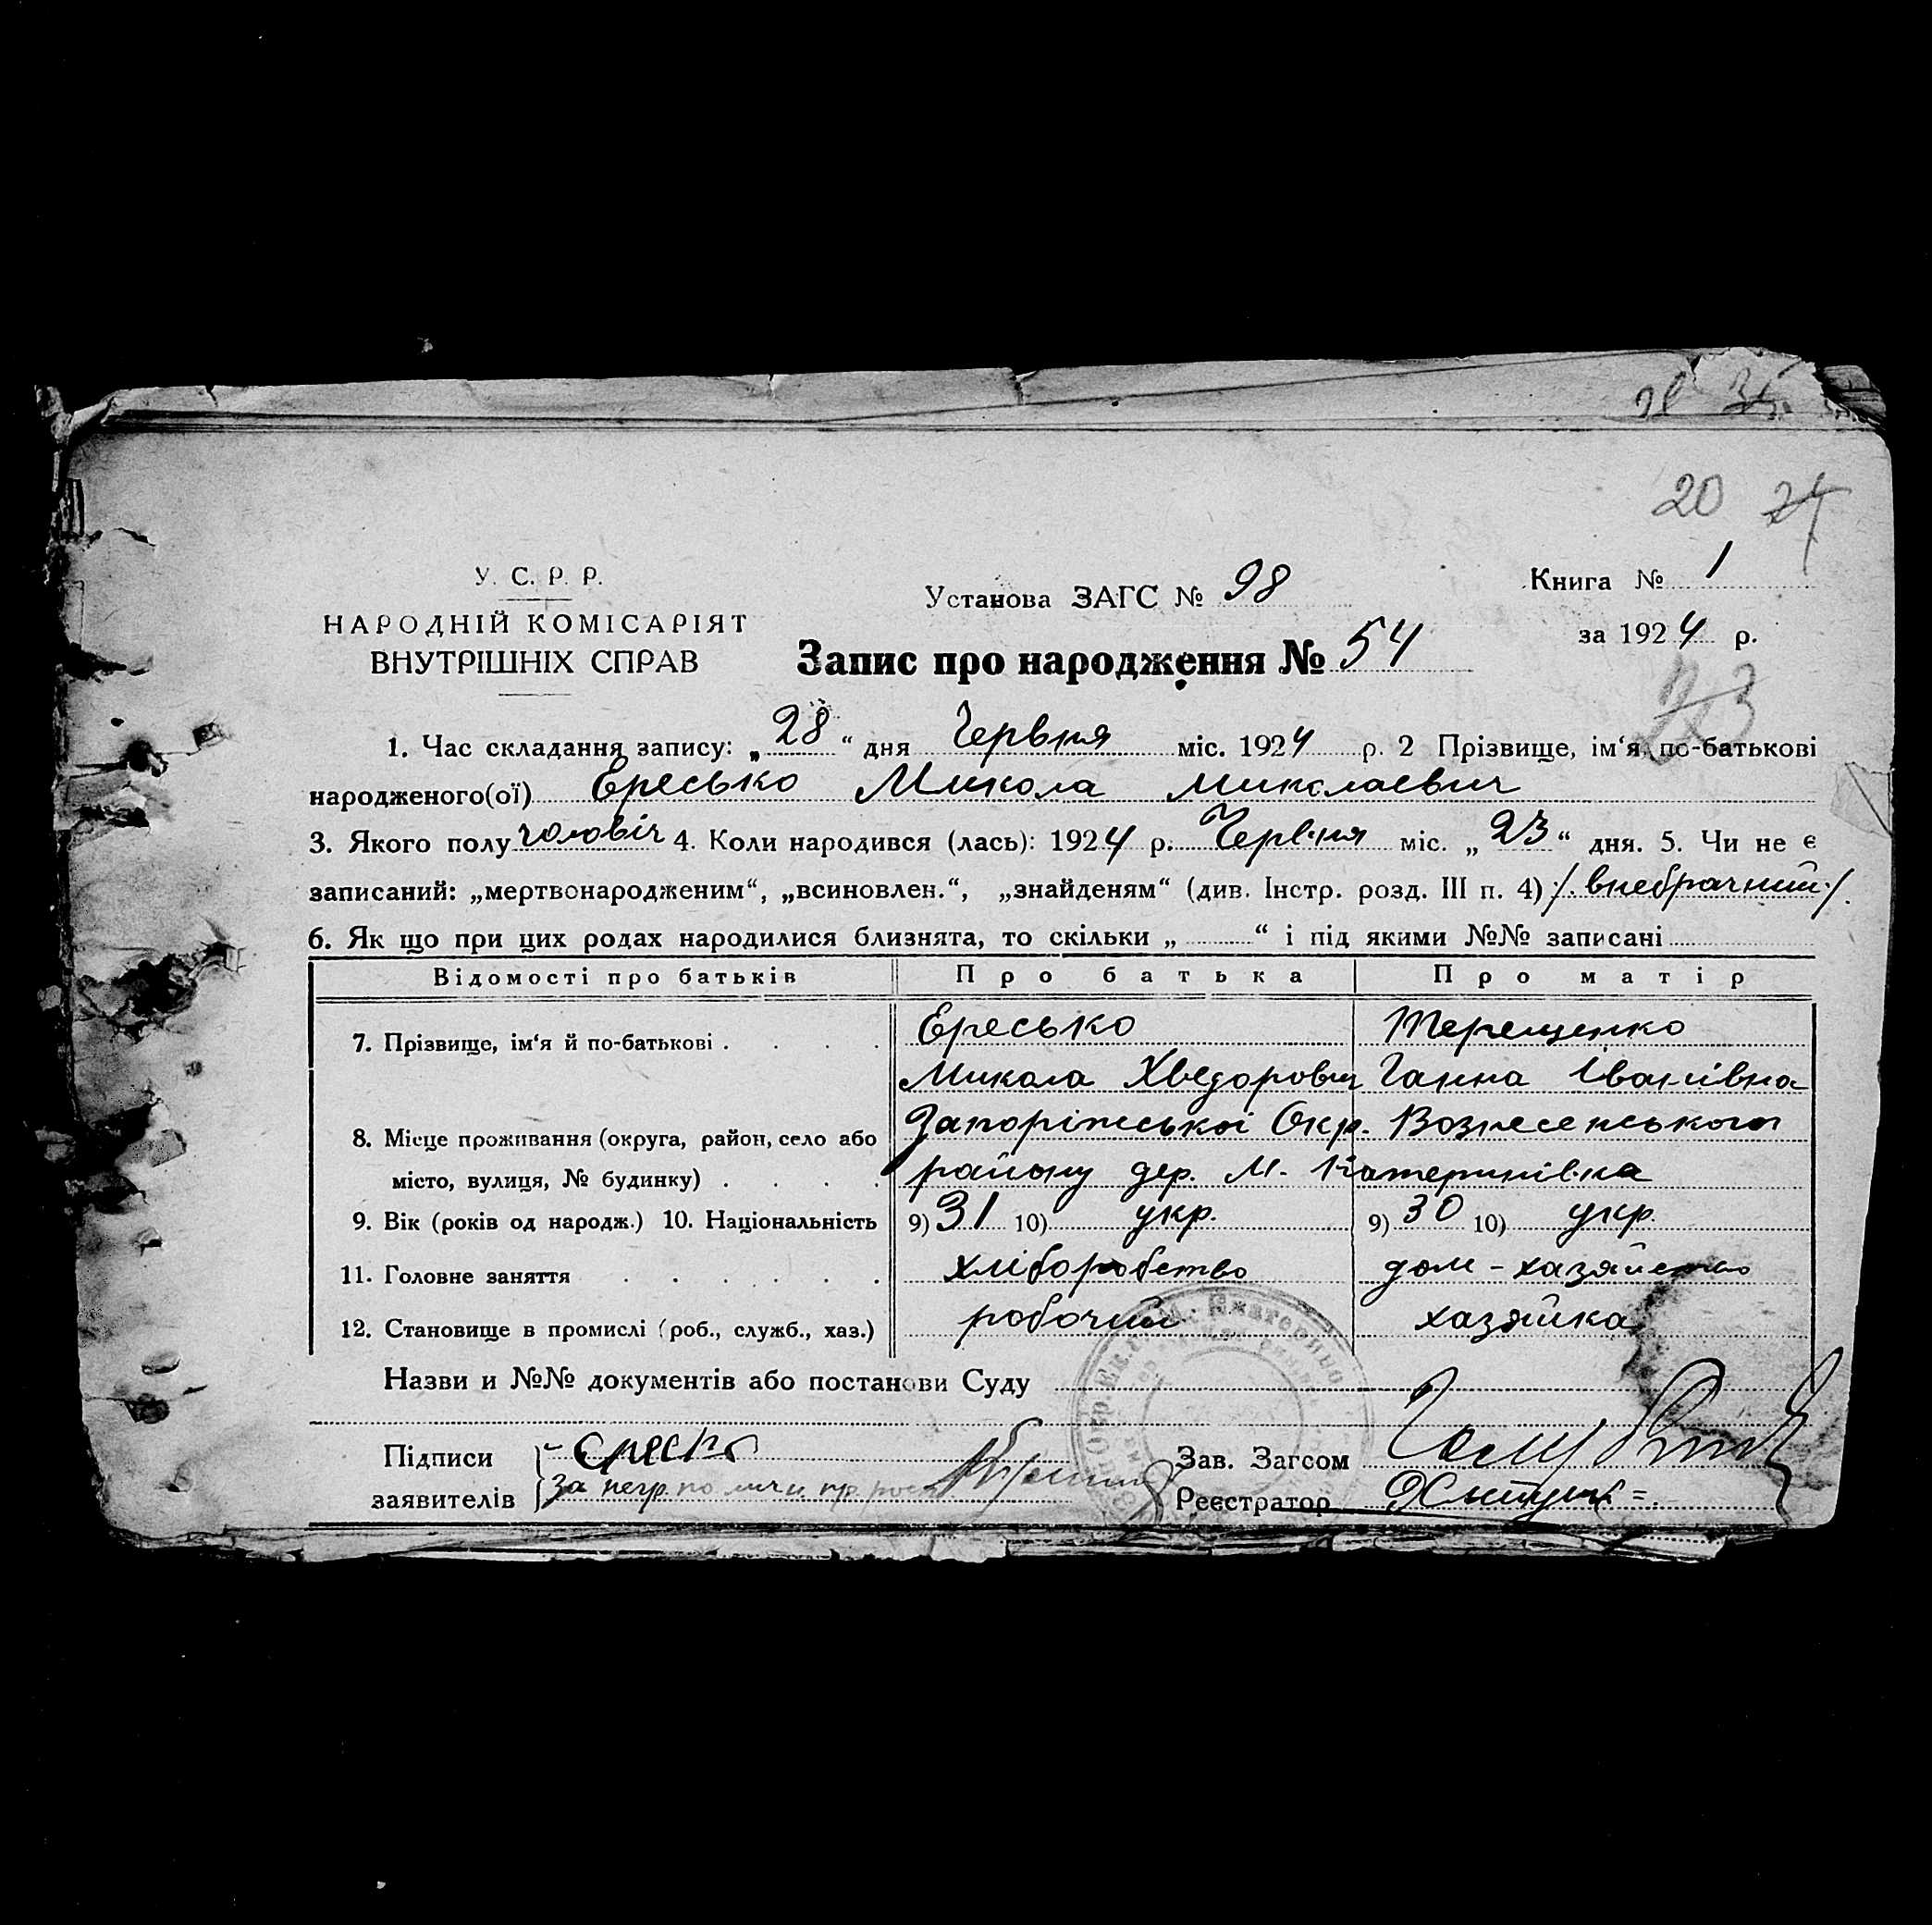 20 24
У. С. Р. Р.
НАРОДНІЙ КОМІСАРІЯТ
ВНУТРІШНІХ СПРАВ
Установа ЗАГС № 98
Книга № 1
за 1924 р.
Запис про народження № 54
23
1. Час складання запису: „28“ дня Червня міс. 1924 р. 2 Прізвище, ім‘я по-батькові
народженого(ої) Ересько Микола Миколаевич
3. Якого полу чоловіч 4. Коли народився (лась): 1924 р. Червня міс. „23“ дня. 5. Чи не є
записаний: „мертвонародженим“, „всиновлен.“, „знайденям“ (див. Інстр. розд. III п. 4) /. внебрачний ./.
6. Як що при цих родах народилися близнята, то скільки „ “ і під якими №№ записані
Відомості про батьків Про батька Про матір
7. Прізвище, ім‘я й по-батькові . . . . Ересько Терещенко
Микола Хведорович Ганна Іванівна
8. Місце проживання (округа, район, село або Запоріжської Окр. Вознесенського
місто, вулиця, № будинку) . . . . району дер. М. Катеринівка
9. Вік (років од народж.) 10. Національність 9) 31 10) укр. 9) 30 10) укр.
11. Головне заняття . . . . . . хліборобство дом-хазяйство
12. Становище в промислі (роб., служб., хаз.) робочий хазяйка
Назви и №№ документів або постанови Суду
Підписи Ересько Зав. Загсом
заявителів За негр. Реєстратор